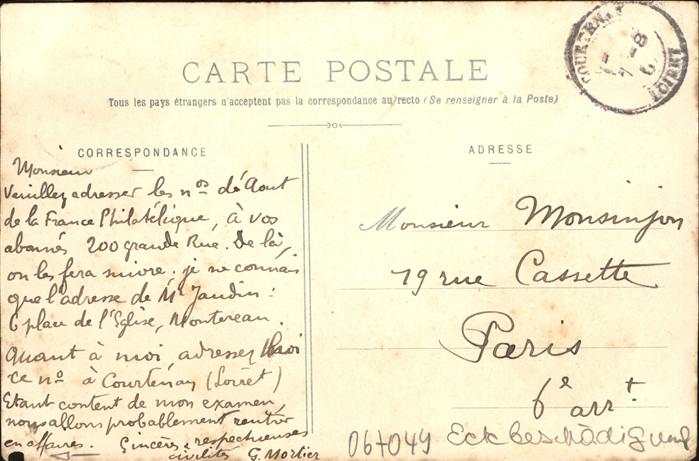 CARTE POSTALE
Tous les pays étrangers n'acceptent pas la correspondance au recto (Se renseigner à la Poste)
CORRESPONDANCE
Monsieur
Veuillez adresser les nos d'Aout
de la France Philatélique, à vos
abonnés 200 grande Rue. De là,
on les fera suivre. je ne connais
que l'adresse de Mr Jaudin :
6 place de l'Eglise, Montereau.
Quant à moi adressez moi
ce no à Courtenay (Loiret)
Etant content de mon examen,
nous allons probablement rentrer
en affaires. Sincères & respectueuses
civilités G. Morlier
ADRESSE
Monsieur Monsinjon
19 rue Cassette
Paris
6e arrt
067049 Eckbeschädigung
COURTENAY
LOIRET